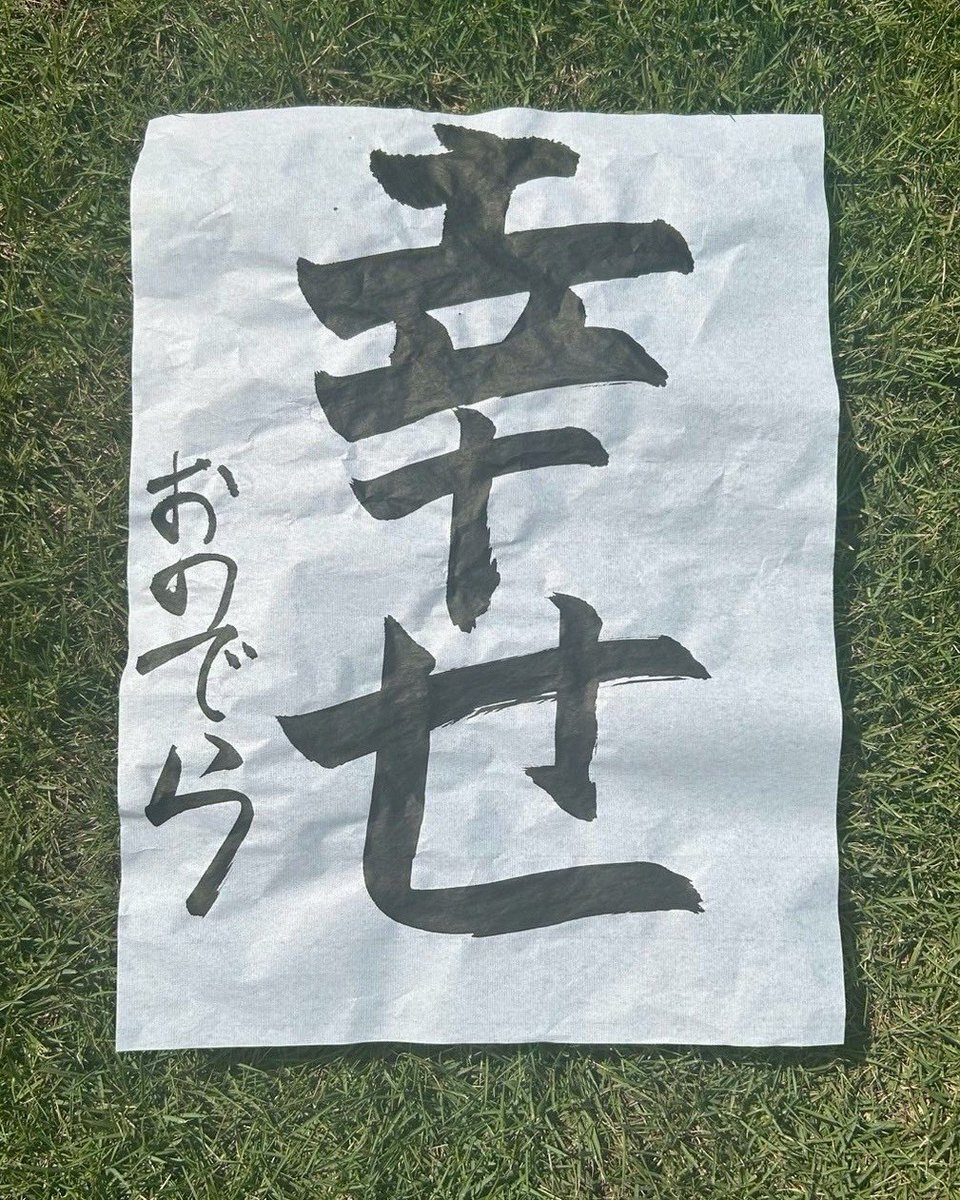 幸せ
おのでら